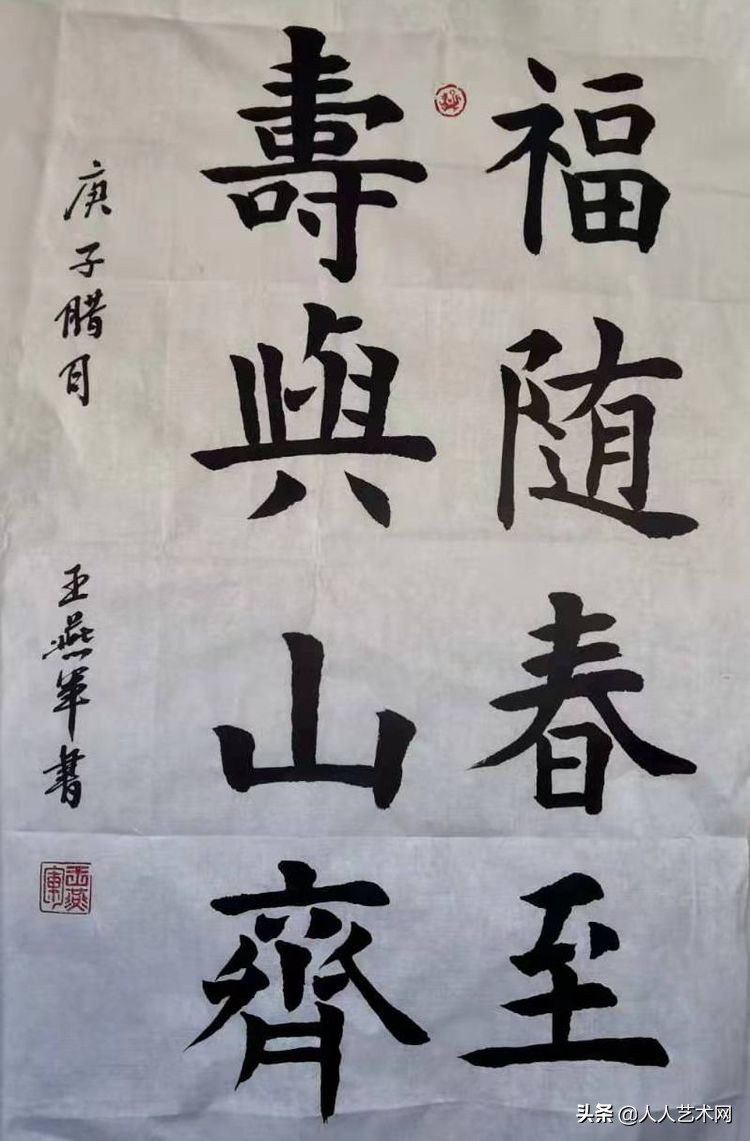 福随春至
壽與山齊
庚子腊月
王燕军书
王燕軍
头条 @人人艺术网